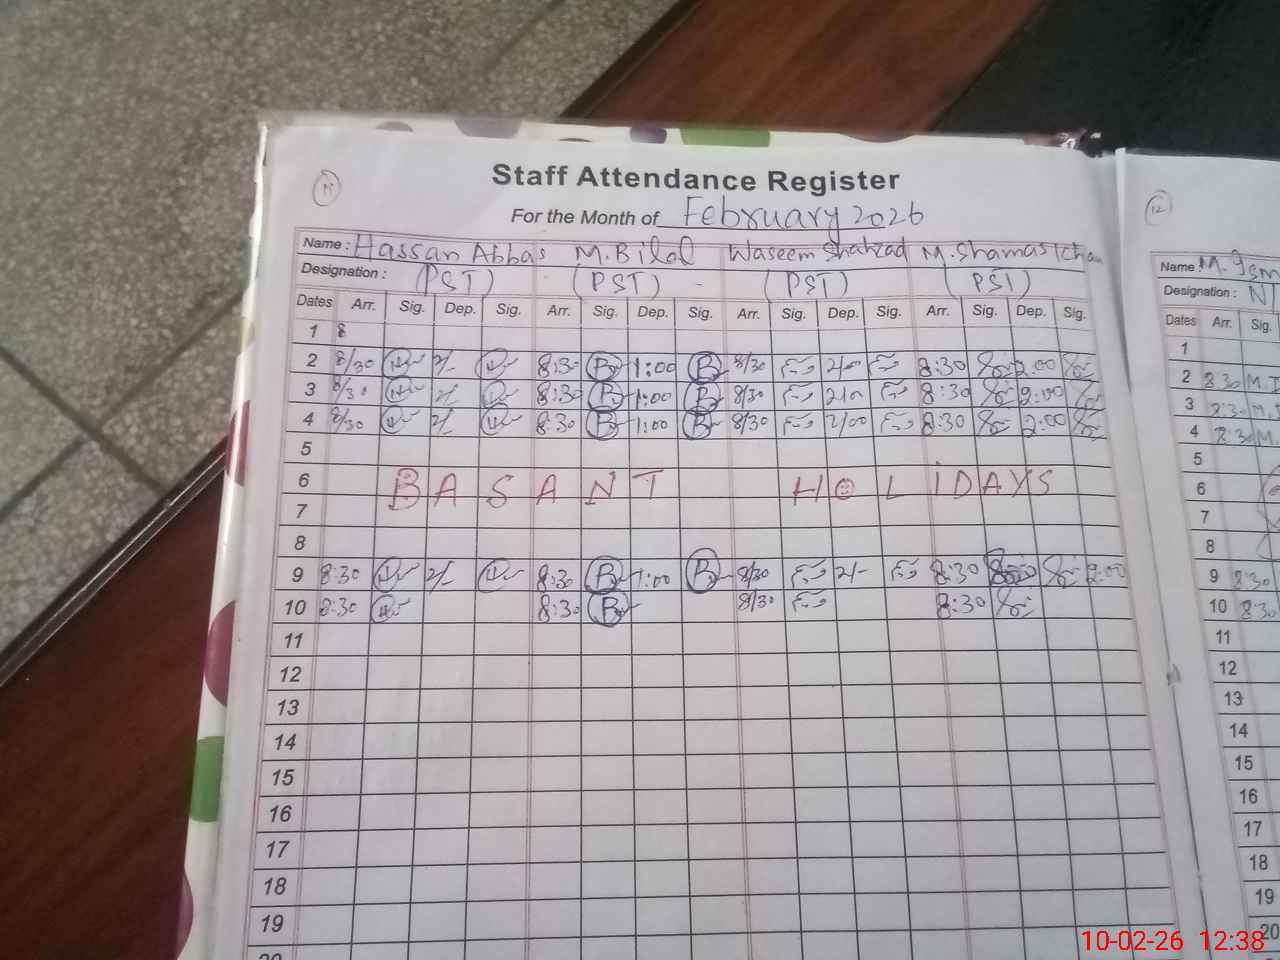 11
Staff Attendance Register
For the Month of February 2026
Name: Hassan Abbas M. Bilal Waseem Shahzad M. Shamas Khan
Designation: (PST) (PST) - (PST) (PST)
Dates Arr. Sig. Dep. Sig. Arr. Sig. Dep. Sig. Arr. Sig. Dep. Sig. Arr. Sig. Dep. Sig.
1 8
2 8/30 2/- 8:30 B 1:00 B 8/30 2/00 8:30 2:00
3 8/30 2/- 8:30 B 1:00 B 8/30 2/00 8:30 2:00
4 8/30 2/- 8:30 B 1:00 B 8/30 2/00 8:30 2:00
5
6 BASANT HOLIDAYS
7
8
9 8:30 2/- 8:30 B 1:00 B 8/30 2/- 8:30 2:00
10 8:30 8:30 B 8/30 8:30
11
12
13
14
15
16
17
18
19
20
12
Name: M.
Designation: N
Dates Arr. Sig.
1
2 8:30 M.
3 8:30 M.
4 8:30 M.
5
6
7
8
9 8:30
10 8:30
11
12
13
14
15
16
17
18
19
20
10-02-26 12:38